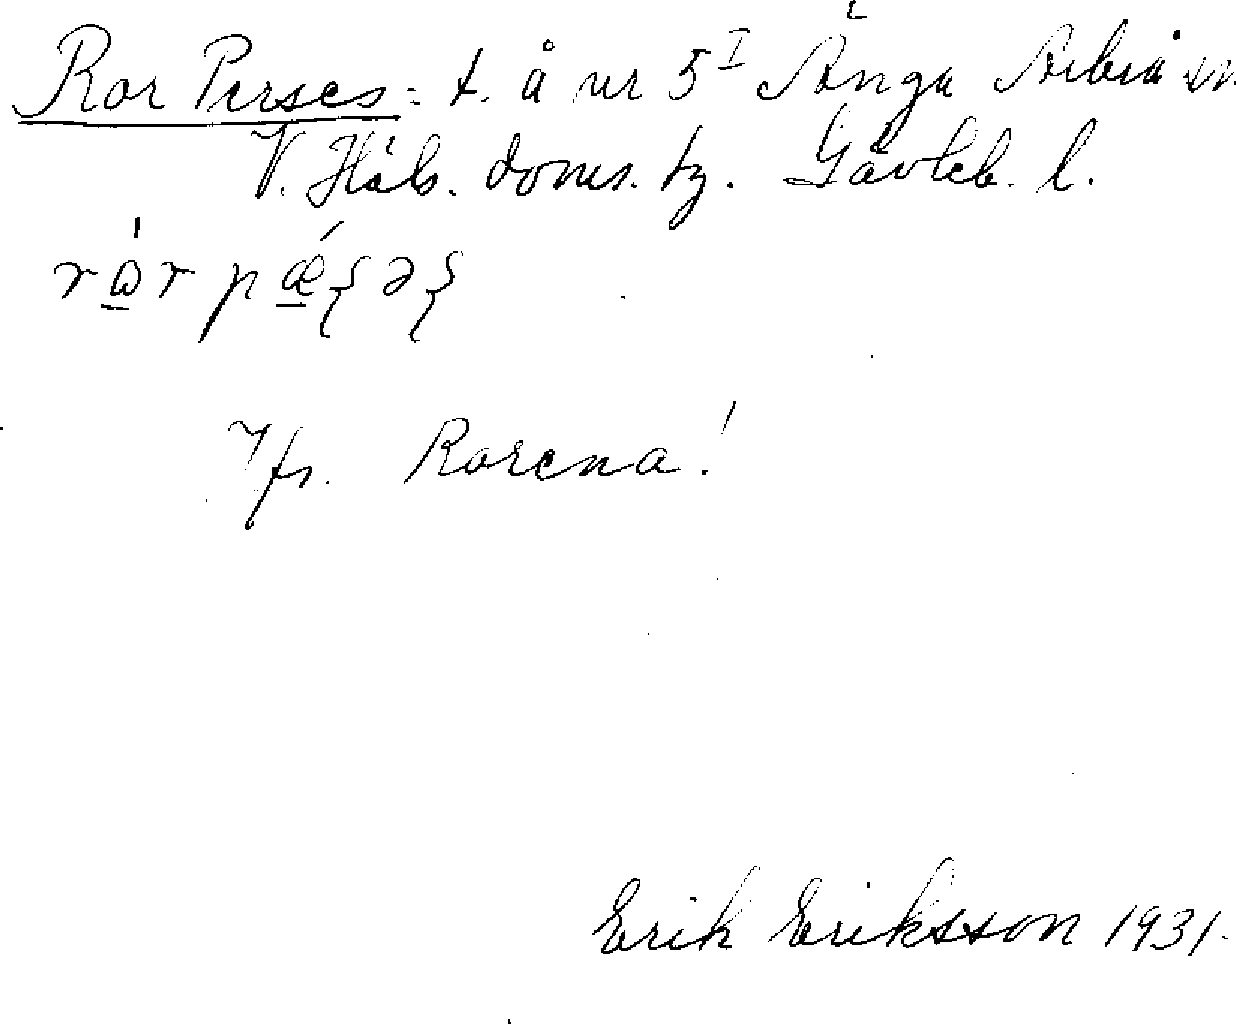 Ror Perses: t. å nr 5ᴵ Änga Arbrå sn.
V. Häls. doms. tg. Gävleb. l.
Jfr. Rorena!
Erik Eriksson 1931.